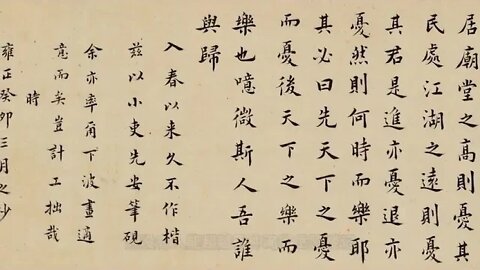 居廟堂之高則憂其
民處江湖之遠則憂
其君是進亦憂退亦
憂然則何時而樂耶
其必曰先天下之憂
而憂後天下之樂而
樂也噫微斯人吾誰
與歸
入春以来久不作楷
茲以小吏先安筆硯
余亦率爾下波畫適
意而矣豈計工拙哉
時
雍正癸卯三月之杪